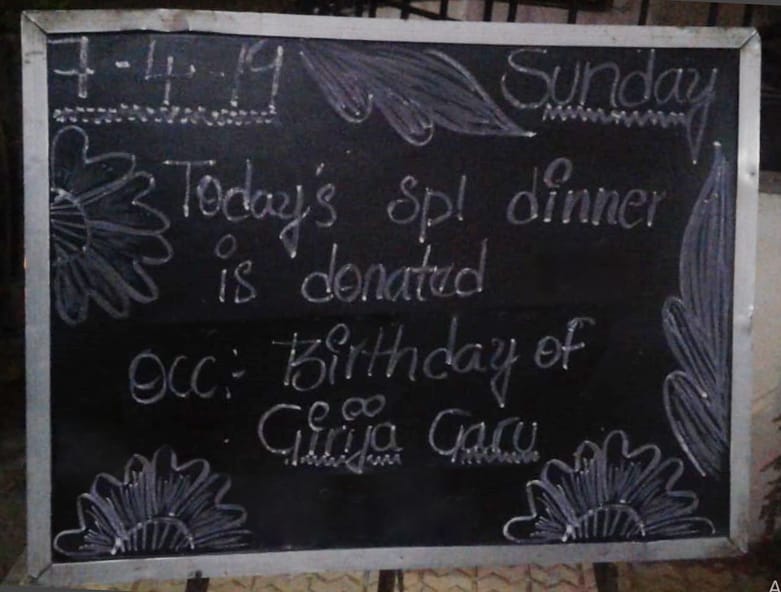 7-4-19 Sunday
Today's spl dinner
is donated
occ:- Birthday of
Girija Garu
A